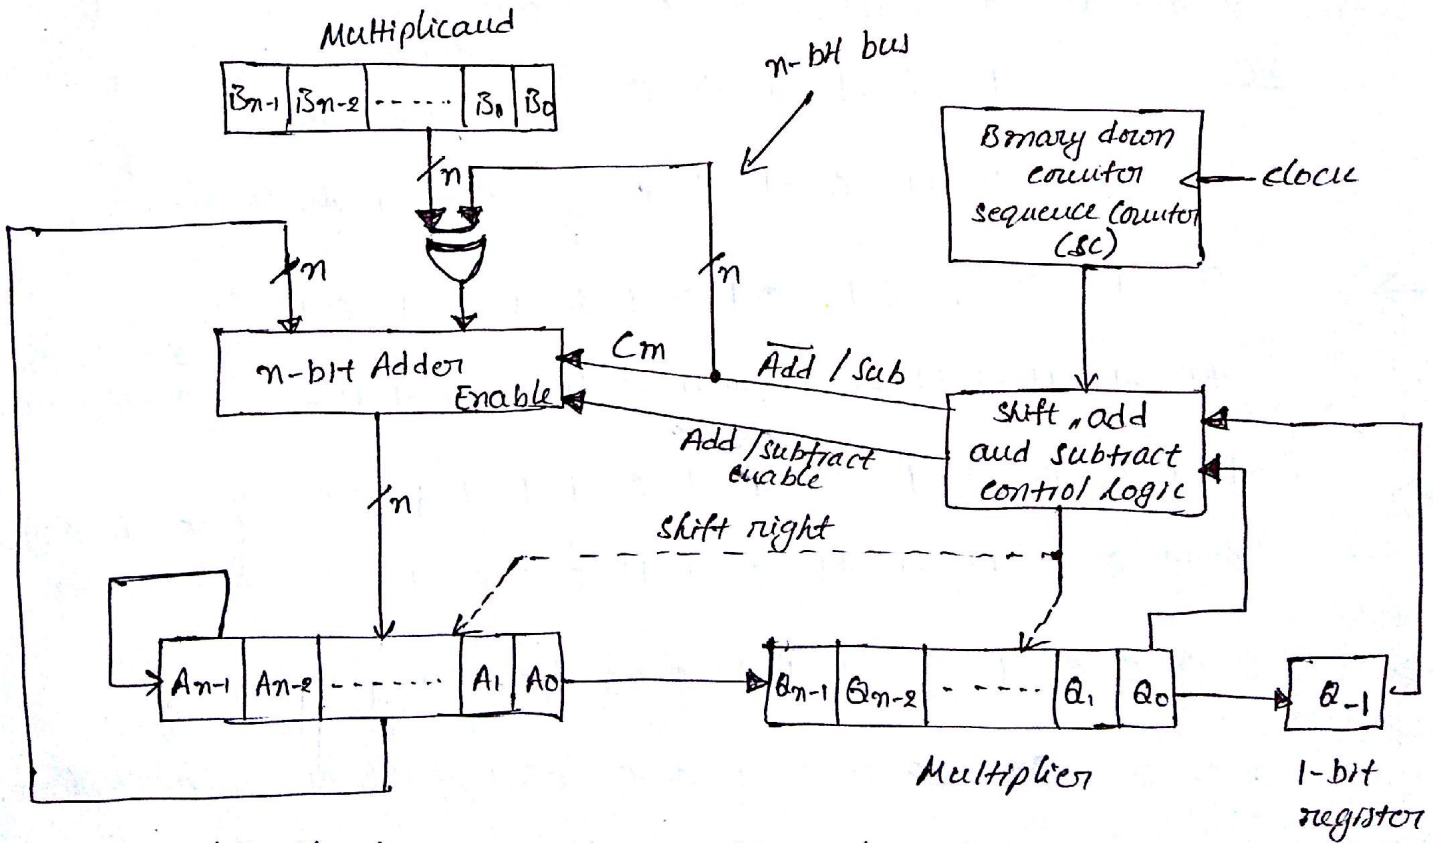 Multiplicand
n-bit bus
Bn-1 Bn-2 ------ B1 B0
Binary down
counter
sequence counter
(SC)
clock
n
n
n
n-bit Adder
Enable
Cin
Add / Sub
Add / subtract
enable
shift, add
and subtract
control logic
n
shift right
An-1 An-2 ------- A1 A0
Qn-1 Qn-2 ------ Q1 Q0
Q-1
Multiplier
1-bit
register